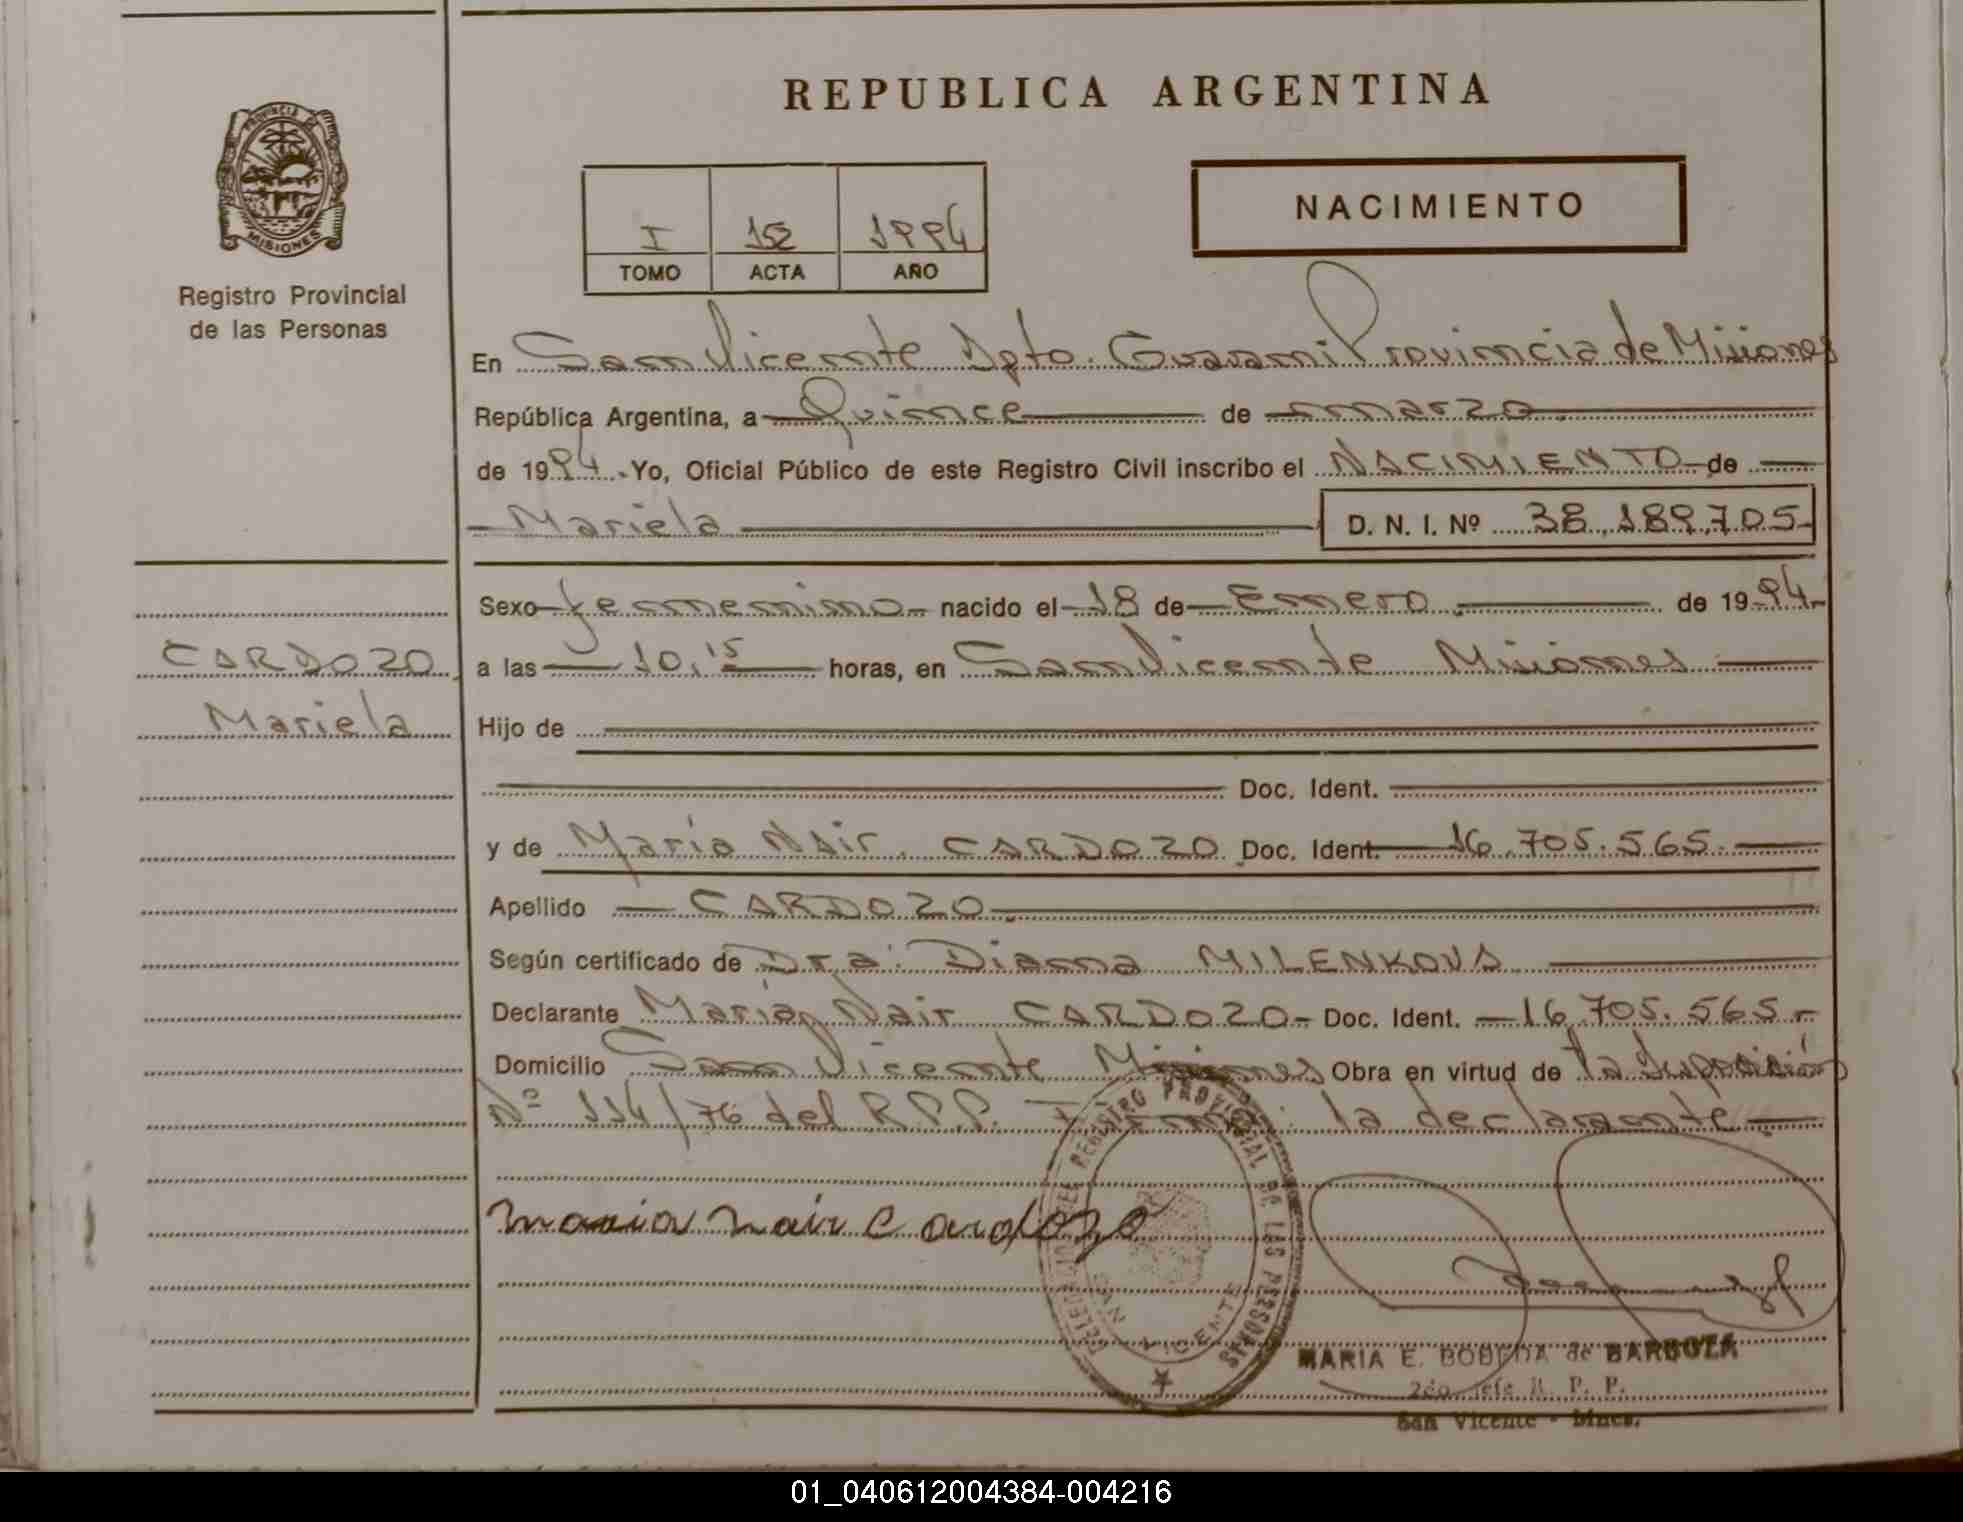 REPUBLICA ARGENTINA
PROVINCIA DE
MISIONES
Registro Provincial
de las Personas
I 152 1994
TOMO ACTA AÑO
NACIMIENTO
En San Vicente Dpto. Guarani Provincia de Misiones
República Argentina, a Quince de marzo
de 1994. Yo, Oficial Público de este Registro Civil inscribo el NACIMIENTO de
Mariela D. N. I. Nº 38.189.705
Sexo femenino nacido el 18 de Enero de 1994
CARDOZO
a las 10,15 horas, en San Vicente Misiones
Mariela
Hijo de
Doc. Ident.
y de María Nair CARDOZO Doc. Ident. 16.705.565
Apellido CARDOZO
Según certificado de Dra. Diana MILENKOVA
Declarante María Nair CARDOZO Doc. Ident. 16.705.565
Domicilio San Vicente Misiones Obra en virtud de la Disposición
Nº 114/76 del R.P.P. Firma: la declarante
maria nair cardozo
REGISTRO PROVINCIAL DE LAS PERSONAS
SAN VICENTE
MARIA E. BOBEDA de BARBOZA
2do Jefe R. P. P.
San Vicente - Mnes.
01_040612004384-004216